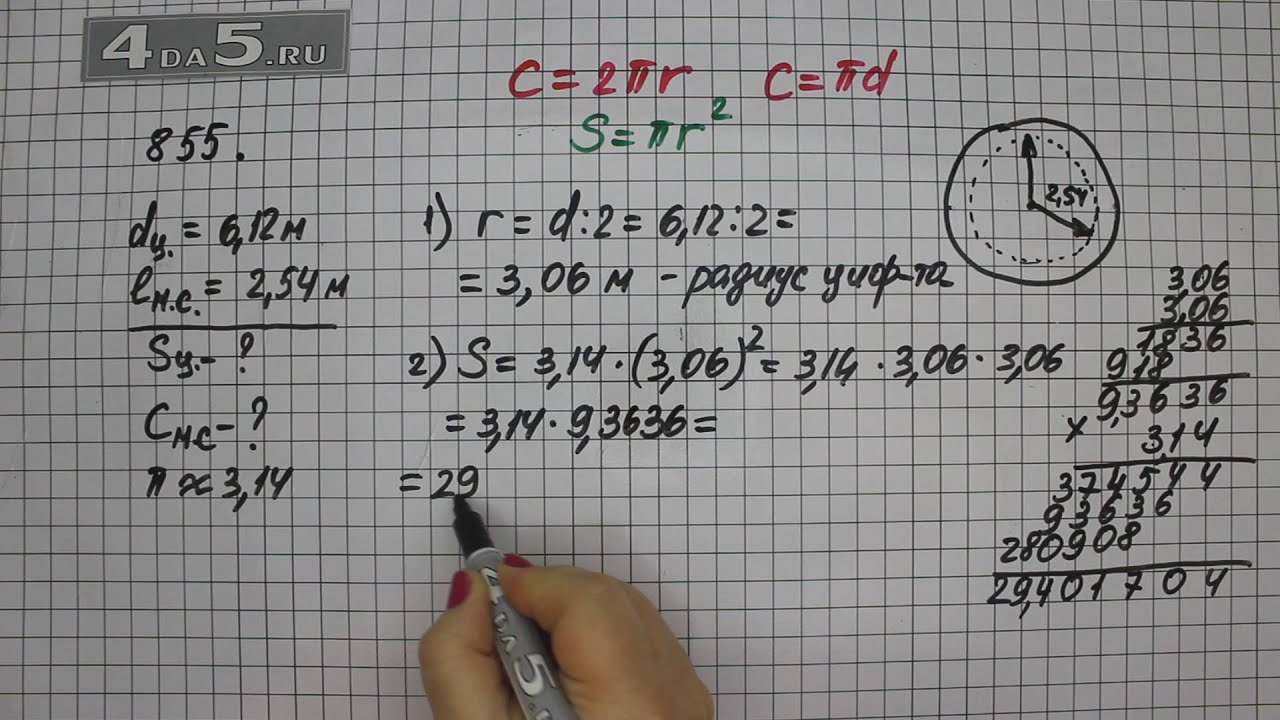 4DA5.RU
C = 2πr C = πd
S = πr²
855.
dц. = 6,12 м
ℓм.с. = 2,54 м
Sц. - ?
Cмс - ?
π ≈ 3,14
1) r = d : 2 = 6,12 : 2 =
= 3,06 м - радиус циф-та
2) S = 3,14 · (3,06)² = 3,14 · 3,06 · 3,06
= 3,14 · 9,3636 =
= 29
2,54
3,06
3,06
1836
918
9,3636
× 3,14
374544
93636
280908
29,401704